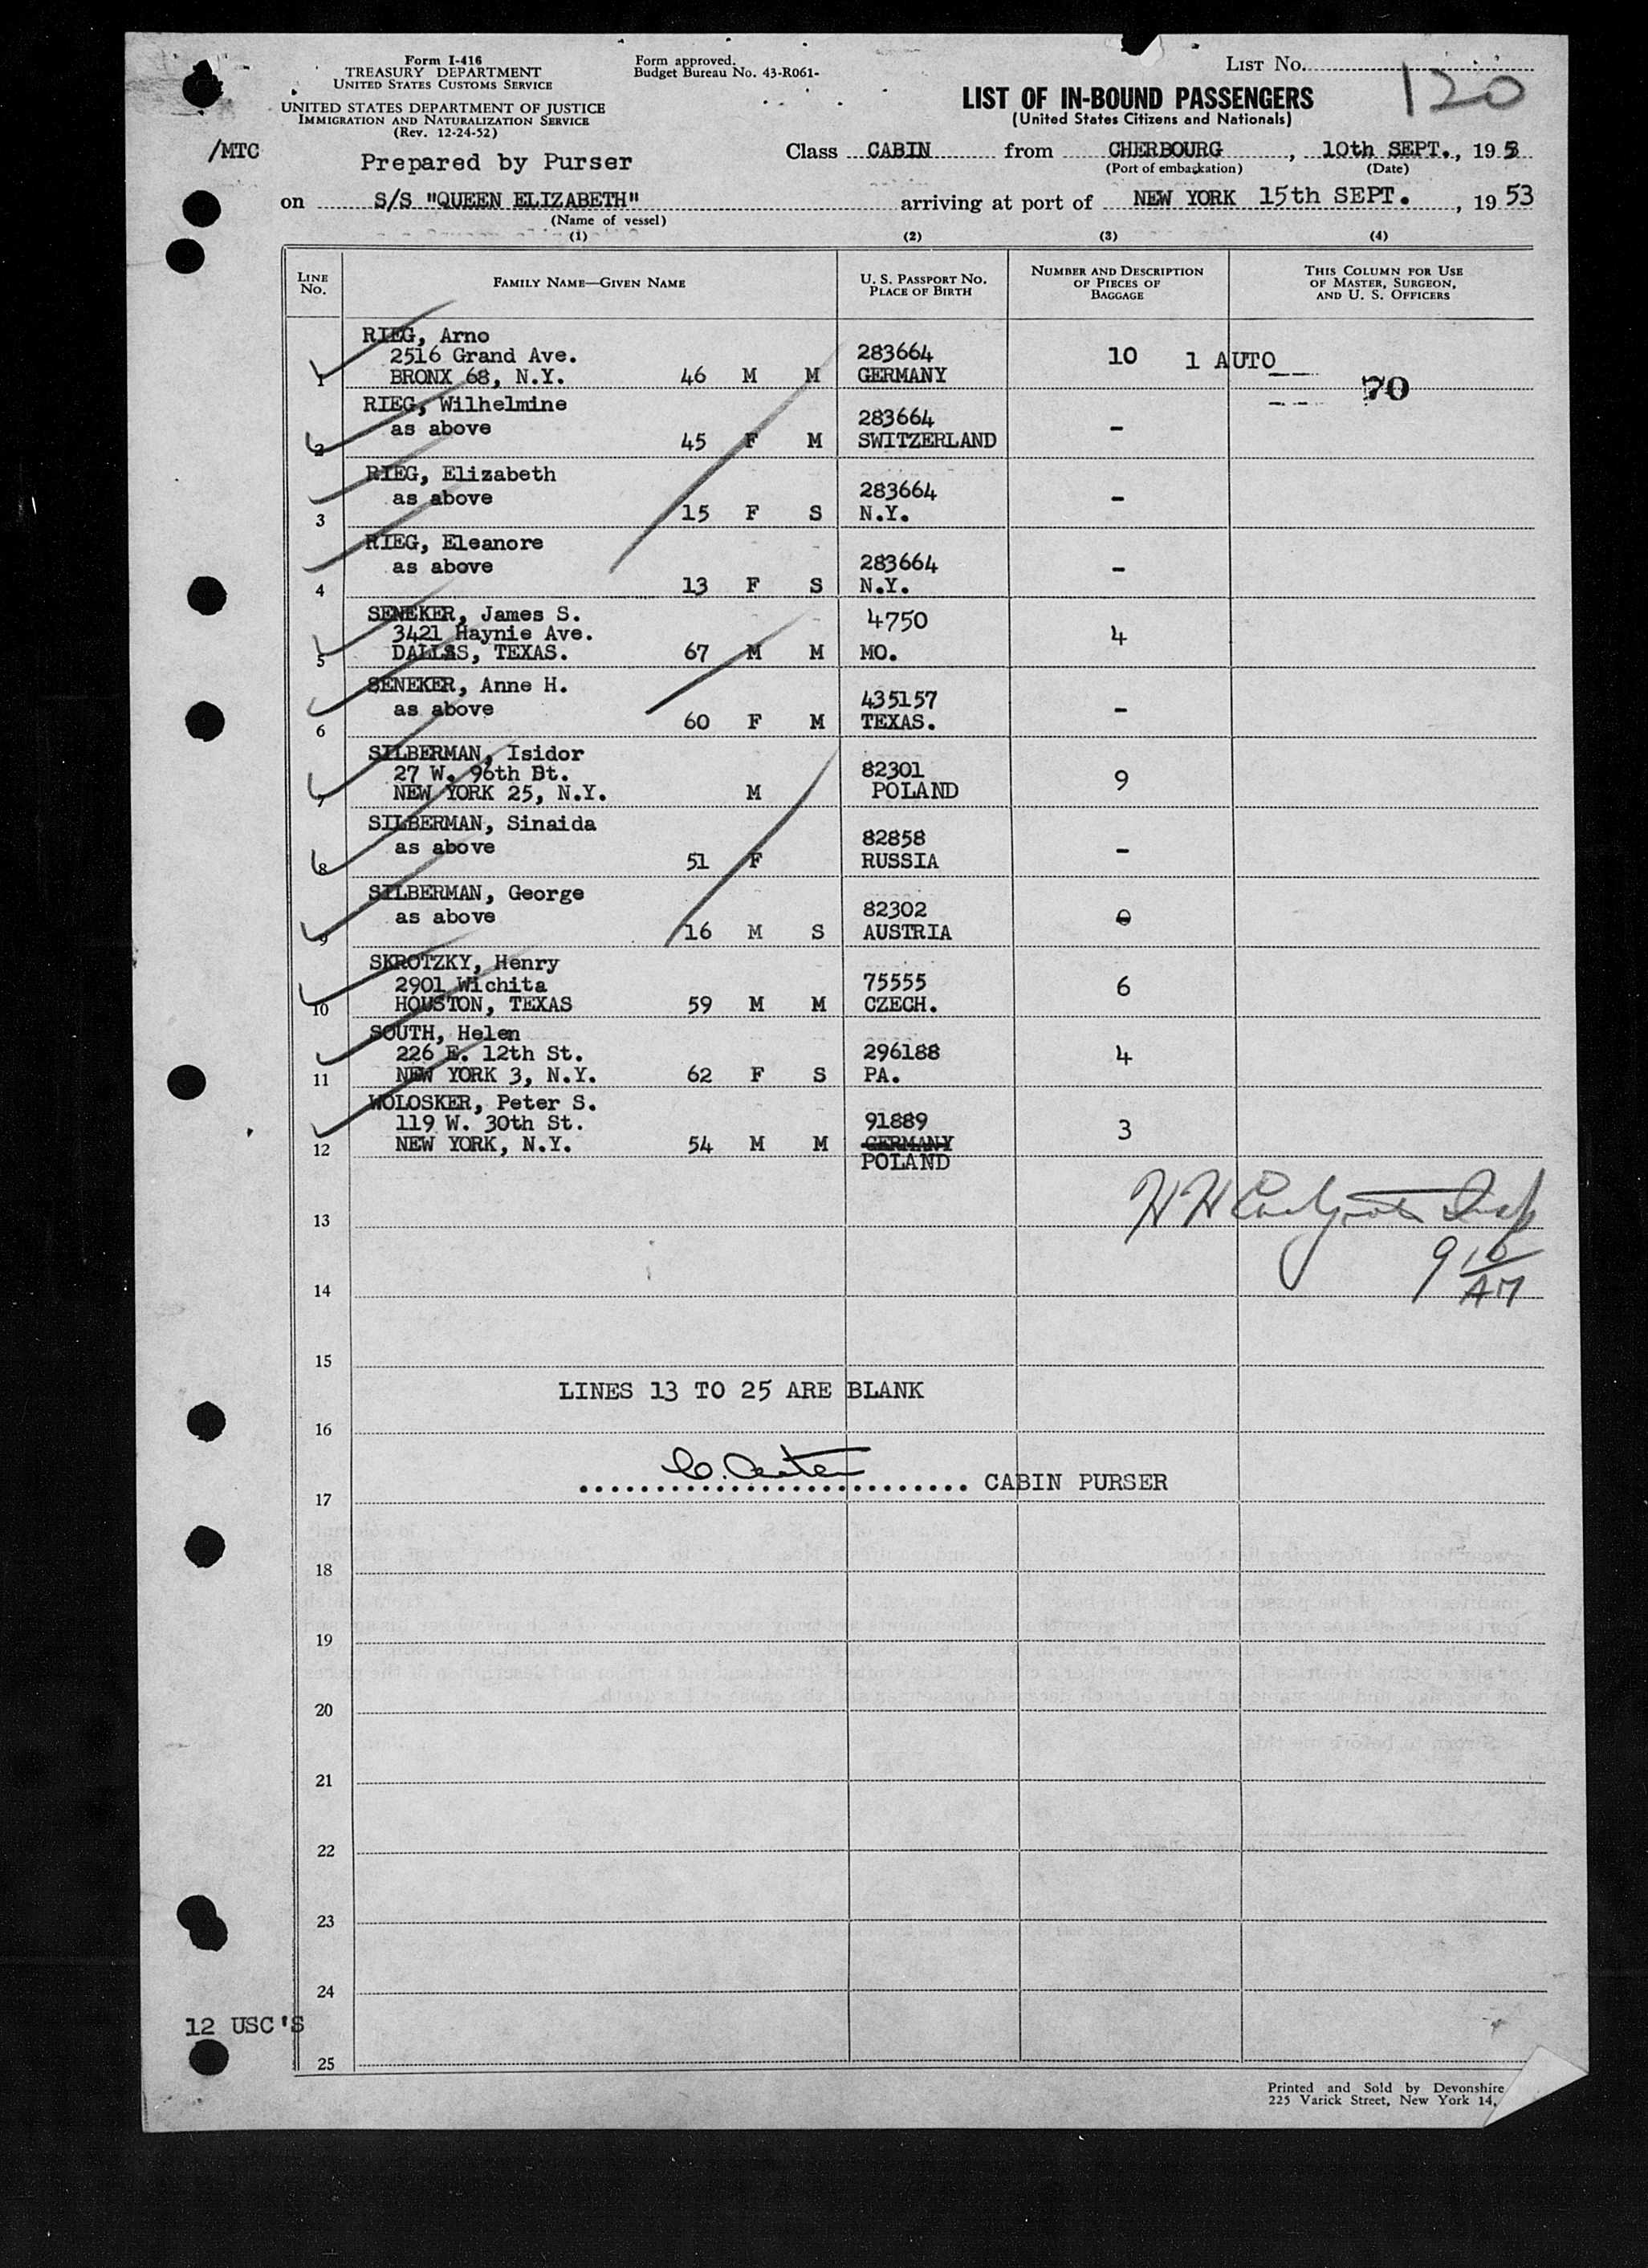 Form I-416
TREASURY DEPARTMENT
UNITED STATES CUSTOMS SERVICE
UNITED STATES DEPARTMENT OF JUSTICE
IMMIGRATION AND NATURALIZATION SERVICE
(Rev. 12-24-52)
Form approved.
Budget Bureau No. 43-R061-
LIST No.
120
LIST OF IN-BOUND PASSENGERS
(United States Citizens and Nationals)
/MTC
Prepared by Purser
Class CABIN from CHERBOURG, 10th SEPT., 1953
(Port of embarkation) (Date)
on S/S "QUEEN ELIZABETH" arriving at port of NEW YORK 15th SEPT., 1953
(Name of vessel)
(1) (2) (3) (4)
LINE No. FAMILY NAME—GIVEN NAME U. S. PASSPORT NO. PLACE OF BIRTH NUMBER AND DESCRIPTION OF PIECES OF BAGGAGE THIS COLUMN FOR USE OF MASTER, SURGEON, AND U. S. OFFICERS
RIEG, Arno
2516 Grand Ave. 283664 10 1 AUTO
1 BRONX 68, N.Y. 46 M M GERMANY
70
RIEG, Wilhelmine
as above 283664 -
2 45 F M SWITZERLAND
RIEG, Elizabeth
as above 283664 -
3 15 F S N.Y.
RIEG, Eleanore
as above 283664 -
4 13 F S N.Y.
SENEKER, James S. 4750
3421 Haynie Ave. 4
5 DALLAS, TEXAS. 67 M M MO.
SENEKER, Anne H.
as above 435157 -
6 60 F M TEXAS.
SILBERMAN, Isidor
27 W. 96th Dt. 82301 9
7 NEW YORK 25, N.Y. M POLAND
SILBERMAN, Sinaida
as above 82858 -
8 51 F RUSSIA
SILBERMAN, George
as above 82302
9 16 M S AUSTRIA
SKROTZKY, Henry
2901 Wichita 75555 6
10 HOUSTON, TEXAS 59 M M CZECH.
SOUTH, Helen
226 E. 12th St. 296188 4
11 NEW YORK 3, N.Y. 62 F S PA.
WOLOSKER, Peter S.
119 W. 30th St. 91889 3
12 NEW YORK, N.Y. 54 M M GERMANY
POLAND
13
9 10
AM
14
15
LINES 13 TO 25 ARE BLANK
16
CABIN PURSER
17
18
19
20
21
22
23
24
12 USC'S
25
Printed and Sold by Devonshire
225 Varick Street, New York 14,